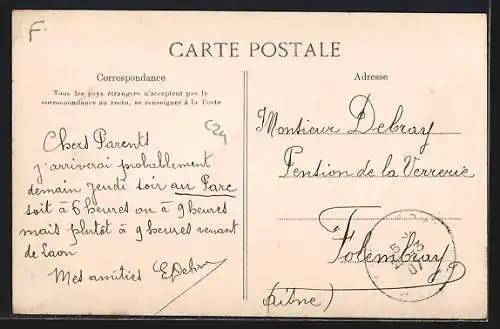 F
CARTE POSTALE
Correspondance
Tous les pays étrangers n'acceptent pas la
correspondance au recto, se renseigner à la Poste
C24
Chers Parents
j'arriverai probablement
demain jeudi soir au Parc
soit à 6 heures ou à 9 heures
mais plutôt à 9 heures venant
de Laon
Mes amitiés EDebray
Adresse
Monsieur Debray
Pention de la Verrerie
Folembray
(Aisne)